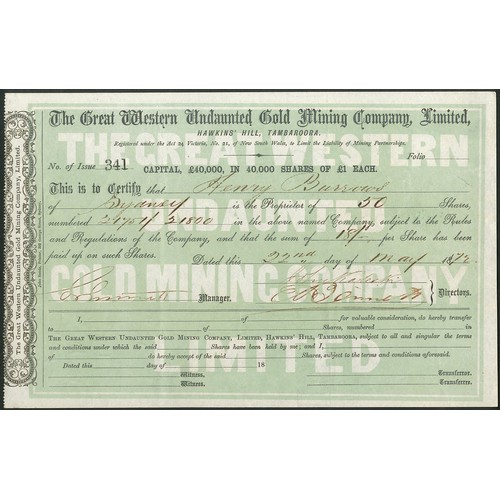 The Great Western Undaunted Gold Mining Company, Limited,
HAWKINS' HILL, TAMBAROORA.
Registered under the Act 24 Victoria, No. 21, of New South Wales, to Limit the Liability of Mining Partnerships.
No. of Issue 341 CAPITAL, £40,000, IN 40,000 SHARES OF £1 EACH. Folio
This is to Certify that Henry Burrows
of Sydney is the Proprietor of 50 Shares,
numbered 21751/21800 in the above named Company, subject to the Rules
and Regulations of the Company, and that the sum of 18/ per Share has been
paid up on such Shares. Dated this 22nd day of May 1872.
Manager. Directors.
I, of for valuable consideration, do hereby transfer
to of Shares, numbered in
THE GREAT WESTERN UNDAUNTED GOLD MINING COMPANY, LIMITED, HAWKINS' HILL, TAMBAROORA, subject to all and singular the terms
and conditions under which the said Shares have been held by me; and I,
of do hereby accept of the said Shares, subject to the terms and conditions aforesaid.
Dated this day of 18
Witness. Transferror.
Witness. Transferree.
The Great Western Undaunted Gold Mining Company, Limited.
THE GREAT WESTERN
UNDAUNTED
GOLD MINING COMPANY
LIMITED